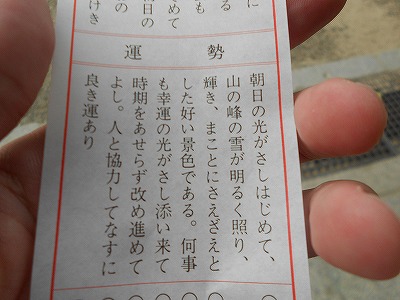 に
る
も
めて
日の
の
けき
運勢
朝日の光がさしはじめて、
山の峰の雪が明るく照り、
輝き、まことにさえざえと
した好い景色である。何事
も幸運の光がさし添い来て
時期をあせらず改め進めて
よし。人と協力してなすに
良き運あり